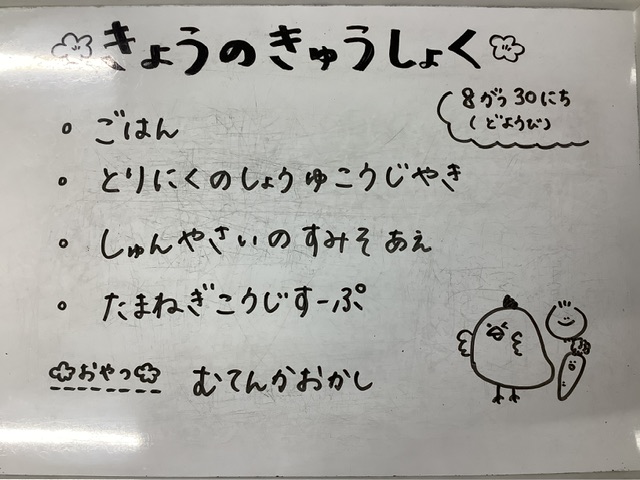 きょうのきゅうしょく
8がつ30にち
(どようび)
ごはん
とりにくのしょうゆこうじやき
しゅんやさいのすみそあえ
たまねぎこうじすーぷ
おやつ むてんかおかし